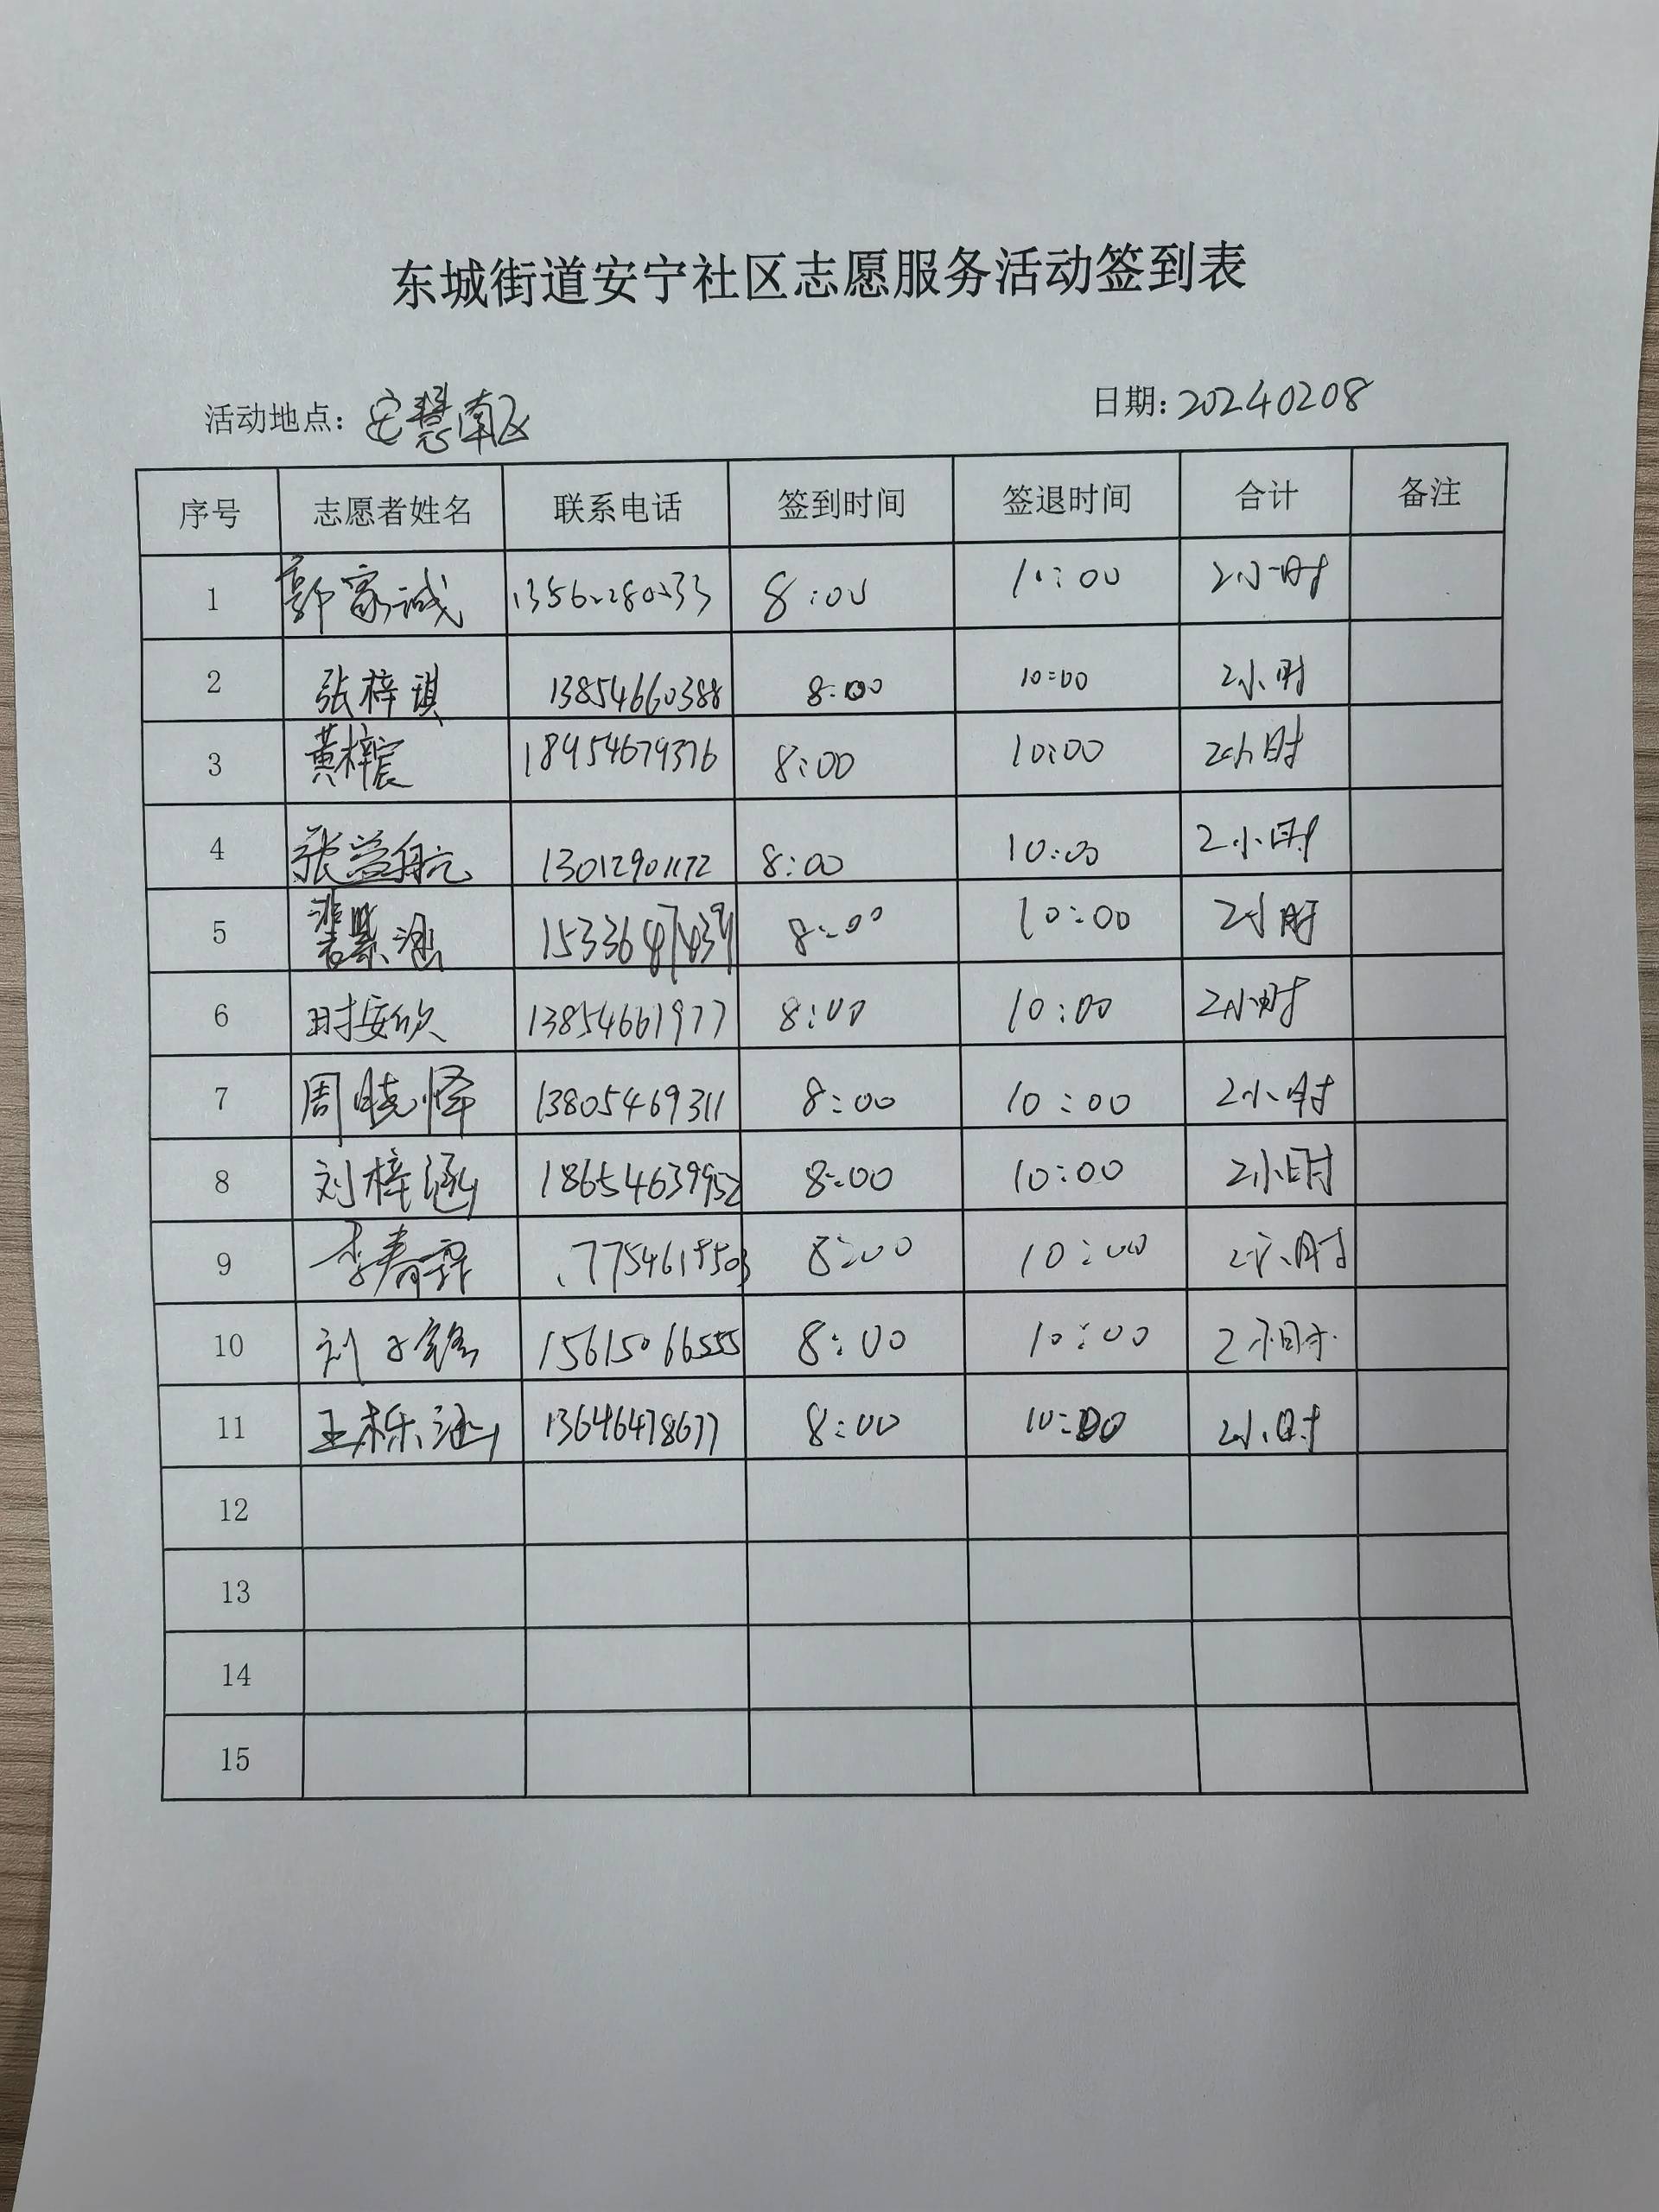 东城街道安宁社区志愿服务活动签到表
活动地点: 安慧南区 日期: 20240208
序号 志愿者姓名 联系电话 签到时间 签退时间 合计 备注
1 郭家诚 8:00 10:00 2小时
2 张梓琪 13854660388 8:00 10:00 2小时
3 黄梓宸 18954679376 8:00 10:00 2小时
4 张益航 13012901172 8:00 10:00 2小时
5 裴紫涵 15336477439 8:00 10:00 2小时
6 时安欣 13854661977 8:00 10:00 2小时
7 周晓怿 13805469311 8:00 10:00 2小时
8 刘梓涵 18654639952 8:00 10:00 2小时
9 李春霖 8:00 10:00 2小时
10 刘子铭 15615066555 8:00 10:00 2小时
11 王栎涵 13646478677 8:00 10:00 2小时
12
13
14
15